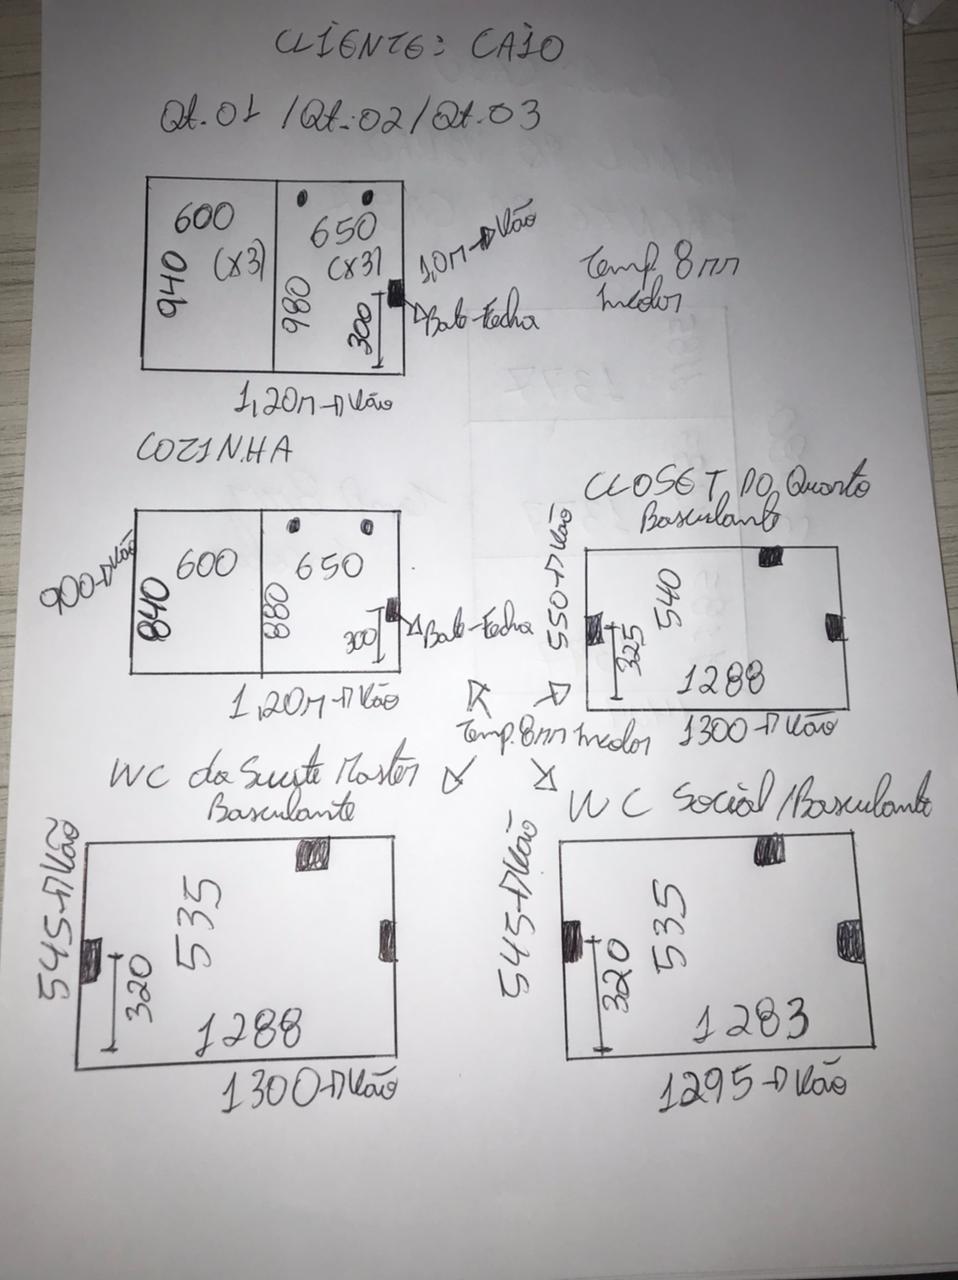 CLIENTE: CAIO
Qt.01 / Qt.02 / Qt.03
600
(x3)
940
650
(x3)
980
300
1,0m→Vão
Bate-Fecha
1,20m→Vão
Temp. 8mm
Incolor
COZINHA
900→Vão
600
840
650
880
300
Bate-Fecha
1,20m→Vão
CLOSET DO Quarto
Basculante
550→Vão
540
325
1288
1300→Vão
Temp. 8mm Incolor
WC da Suíte Master
Basculante
545→Vão
535
320
1288
1300→Vão
WC Social/Basculante
545→Vão
535
320
1283
1295→Vão